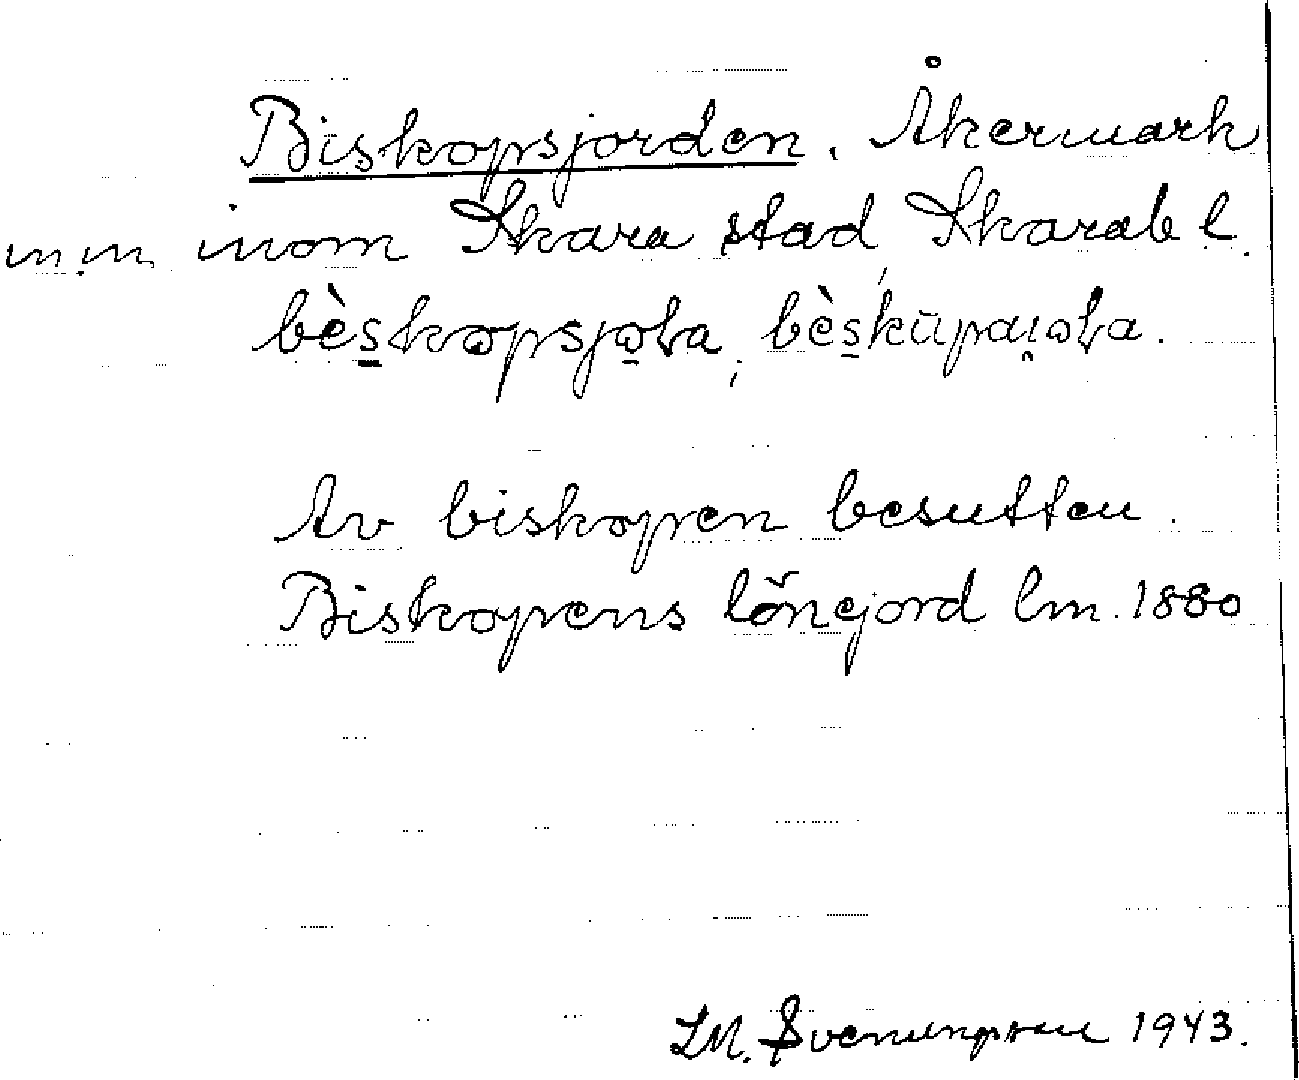 Biskopsjorden. Åkermark
inom Skara stad, Skarab l.
bèskopsjoɫa; bèskūpaɪoɫa.
Av biskopen besutten.
Biskopens lönejord lm. 1880
I.M. Svenungsson 1943.